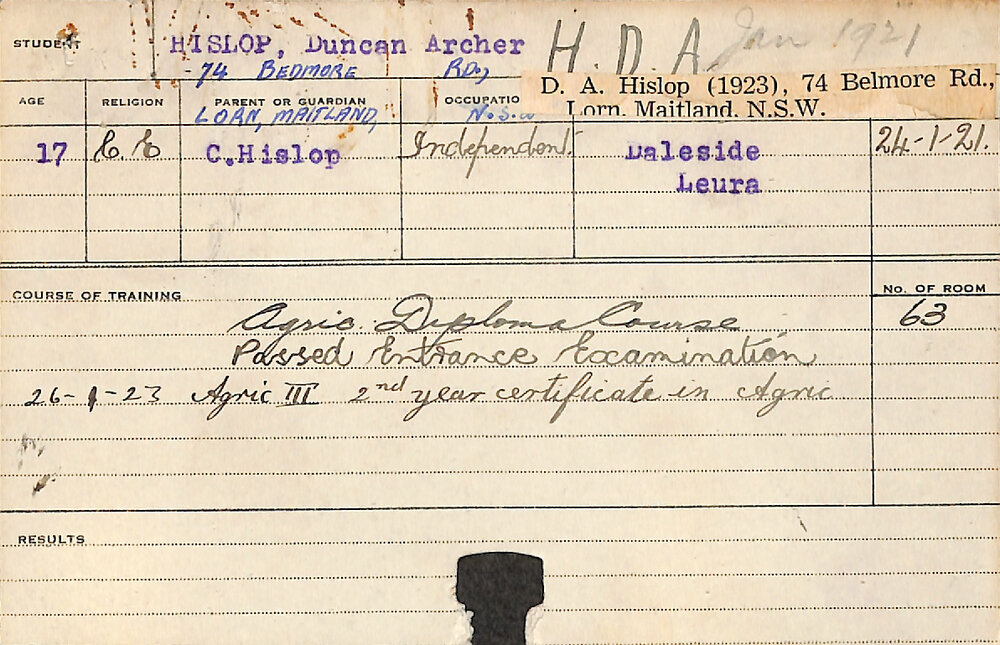 STUDENT HISLOP, Duncan Archer H.D.A. Jan 1921
74 BEDMORE RD.,
D. A. Hislop (1923), 74 Belmore Rd.,
Lorn, Maitland, N.S.W.
AGE RELIGION PARENT OR GUARDIAN OCCUPATIO
LORN, MAITLAND, N.S.W
17 C.E C.Hislop Independent. Daleside 24-1-21.
Leura
COURSE OF TRAINING No. OF ROOM
Agric. Diploma Course 63
Passed Entrance Examination
26-1-23 Agric III 2nd year certificate in Agric
RESULTS